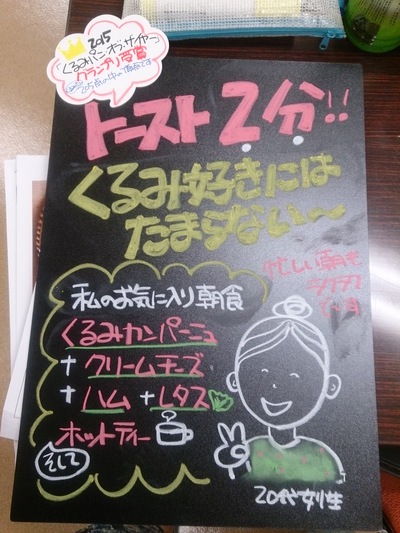 2015
「くるみパン・オブ・ザ・イヤー」
グランプリ受賞
トースト2分!!
くるみ好きには
たまらない〜
忙しい朝も
私のお気に入り朝食
くるみカンパーニュ
+クリームチーズ
+ハム+レタス
ホットティー
そして
20代女性